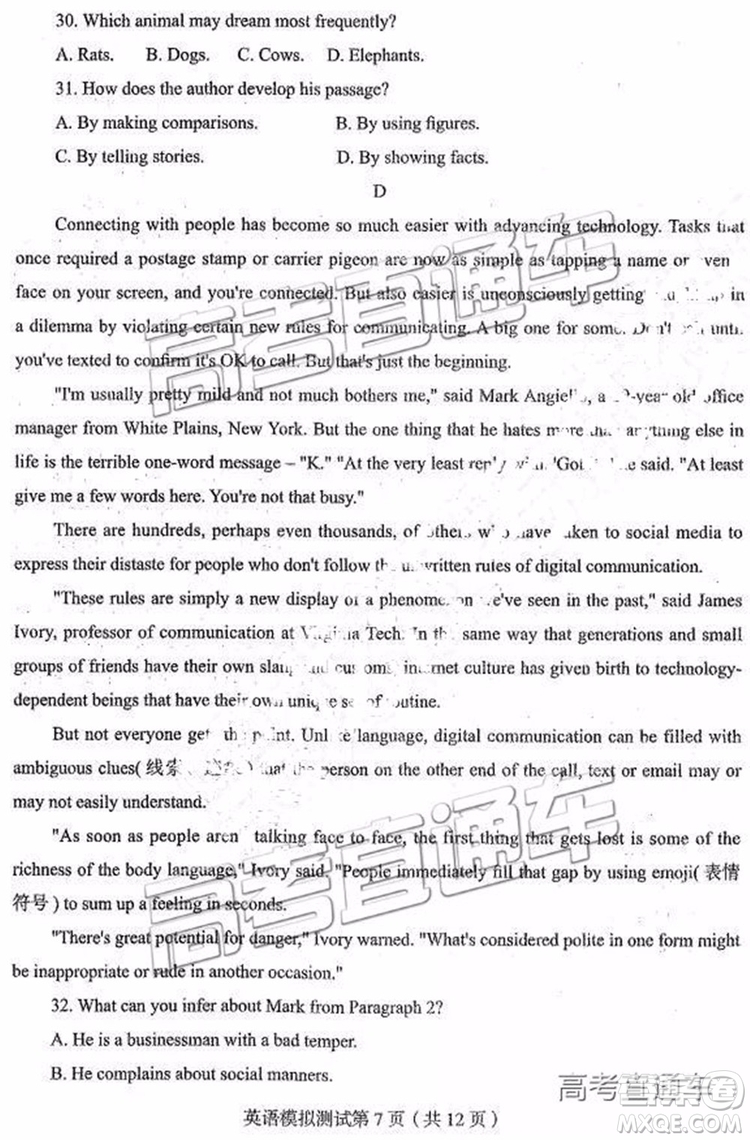 30. Which animal may dream most frequently?
A. Rats. B. Dogs. C. Cows. D. Elephants.
31. How does the author develop his passage?
A. By making comparisons. B. By using figures.
C. By telling stories. D. By showing facts.
D
Connecting with people has become so much easier with advancing technology. Tasks that
once required a postage stamp or carrier pigeon are now as simple as tapping a name or even
face on your screen, and you're connected. But also easier is unconsciously getting in
a dilemma by violating certain new rules for communicating. A big one for some: Don't until
you've texted to confirm it's OK to call. But that's just the beginning.
"I'm usually pretty mild and not much bothers me," said Mark a -year old office
manager from White Plains, New York. But the one thing that he hates more than anything else in
life is the terrible one-word message – "K." "At the very least reply with 'Got he said. "At least
give me a few words here. You're not that busy."
There are hundreds, perhaps even thousands, of others who have taken to social media to
express their distaste for people who don't follow the unwritten rules of digital communication.
"These rules are simply a new display of a phenomenon we've seen in the past," said James
Ivory, professor of communication at Virginia Tech. In the same way that generations and small
groups of friends have their own slang and customs, internet culture has given birth to technology-
dependent beings that have their own unique set of routine.
But not everyone gets the point. Unlike language, digital communication can be filled with
ambiguous clues(线索 ) that the person on the other end of the call, text or email may or
may not easily understand.
"As soon as people aren talking face to face, the first thing that gets lost is some of the
richness of the body language," Ivory said. "People immediately fill that gap by using emoji(表情
符号) to sum up a feeling in seconds.
"There's great potential for danger," Ivory warned. "What's considered polite in one form might
be inappropriate or rude in another occasion."
32. What can you infer about Mark from Paragraph 2?
A. He is a businessman with a bad temper.
B. He complains about social manners.
英语模拟测试第7页(共12页)
高考直通车
高考直通车
高考直通车
MXQE.COM